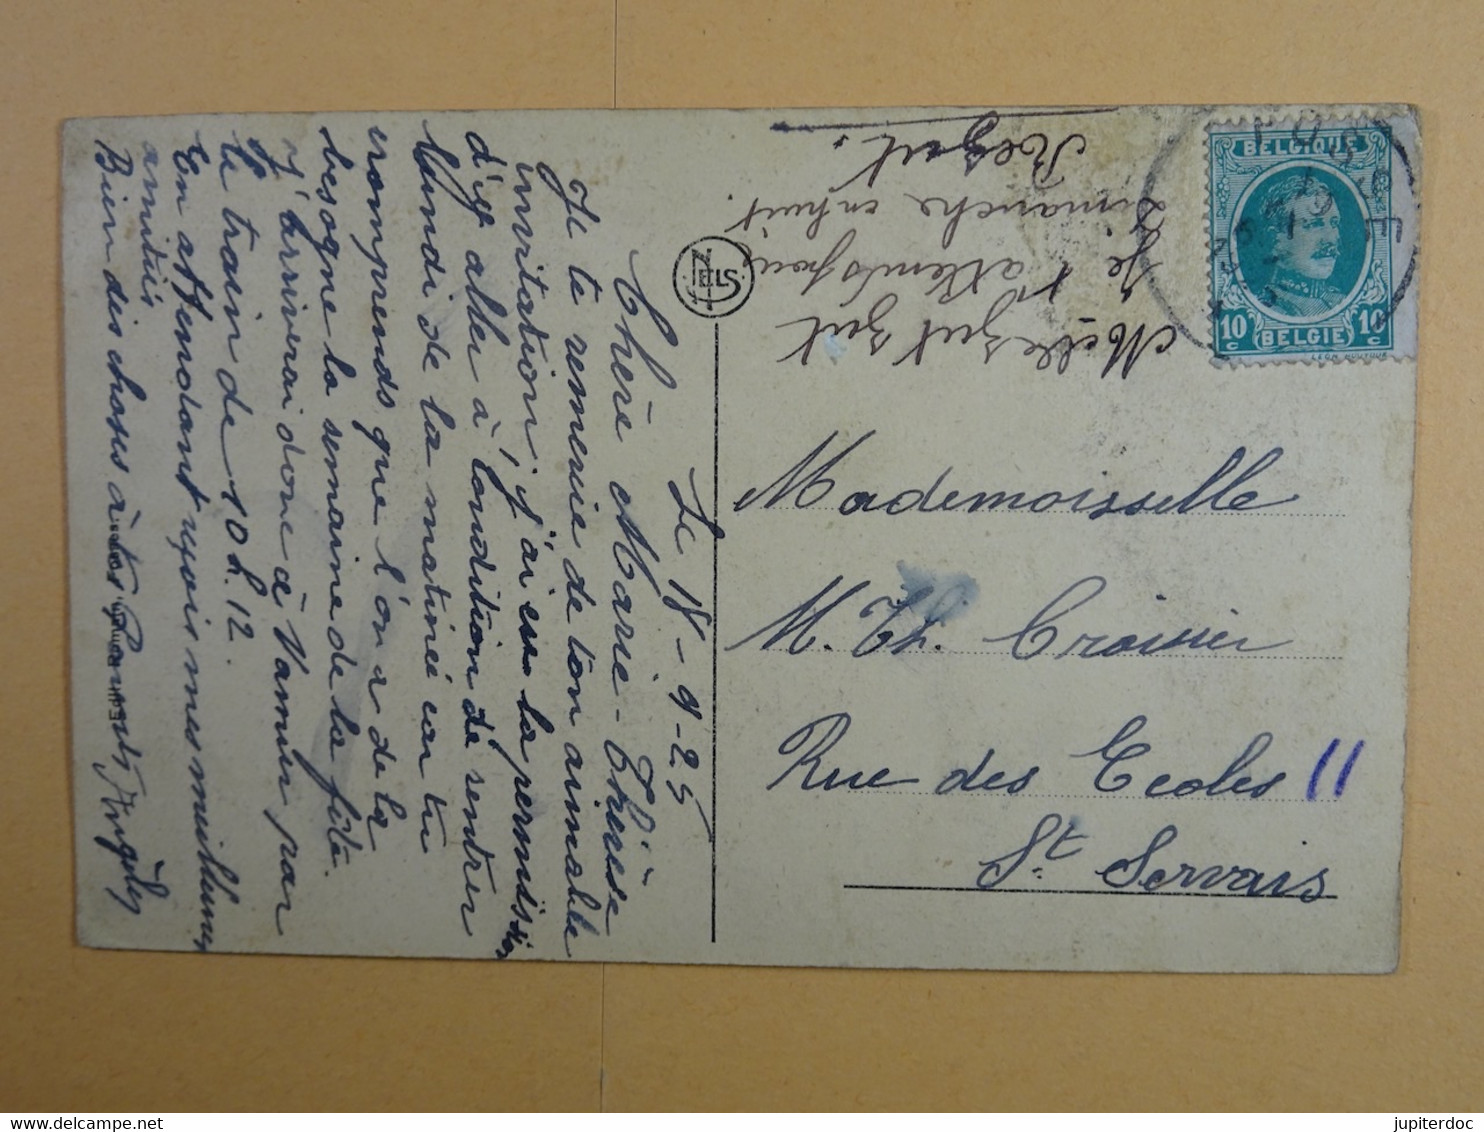 Le 18-9-25
Chère Marie-Thérèse
Je te remercie de ton aimable
invitation, j'ai eu la permission
d'y aller à condition de rentrer
lundi de la matinée car tu
comprends que l'on a de la
besogne la semaine de la fête.
J'arriverai donc à Namur par
le train de 10 h. 12.
En attendant reçois mes meilleures
amitiés
Bien des choses à tes Parents Angèle
NELS
Melle zut zut zut
Je t'attends
Dimanche en huit.
Rezut.
FOSSE
BELGIQUE
10c 10c
BELGIE
Mademoisselle
M. Th. Croisier
Rue des Ecoles 11
St. Servais
jupiterdoc